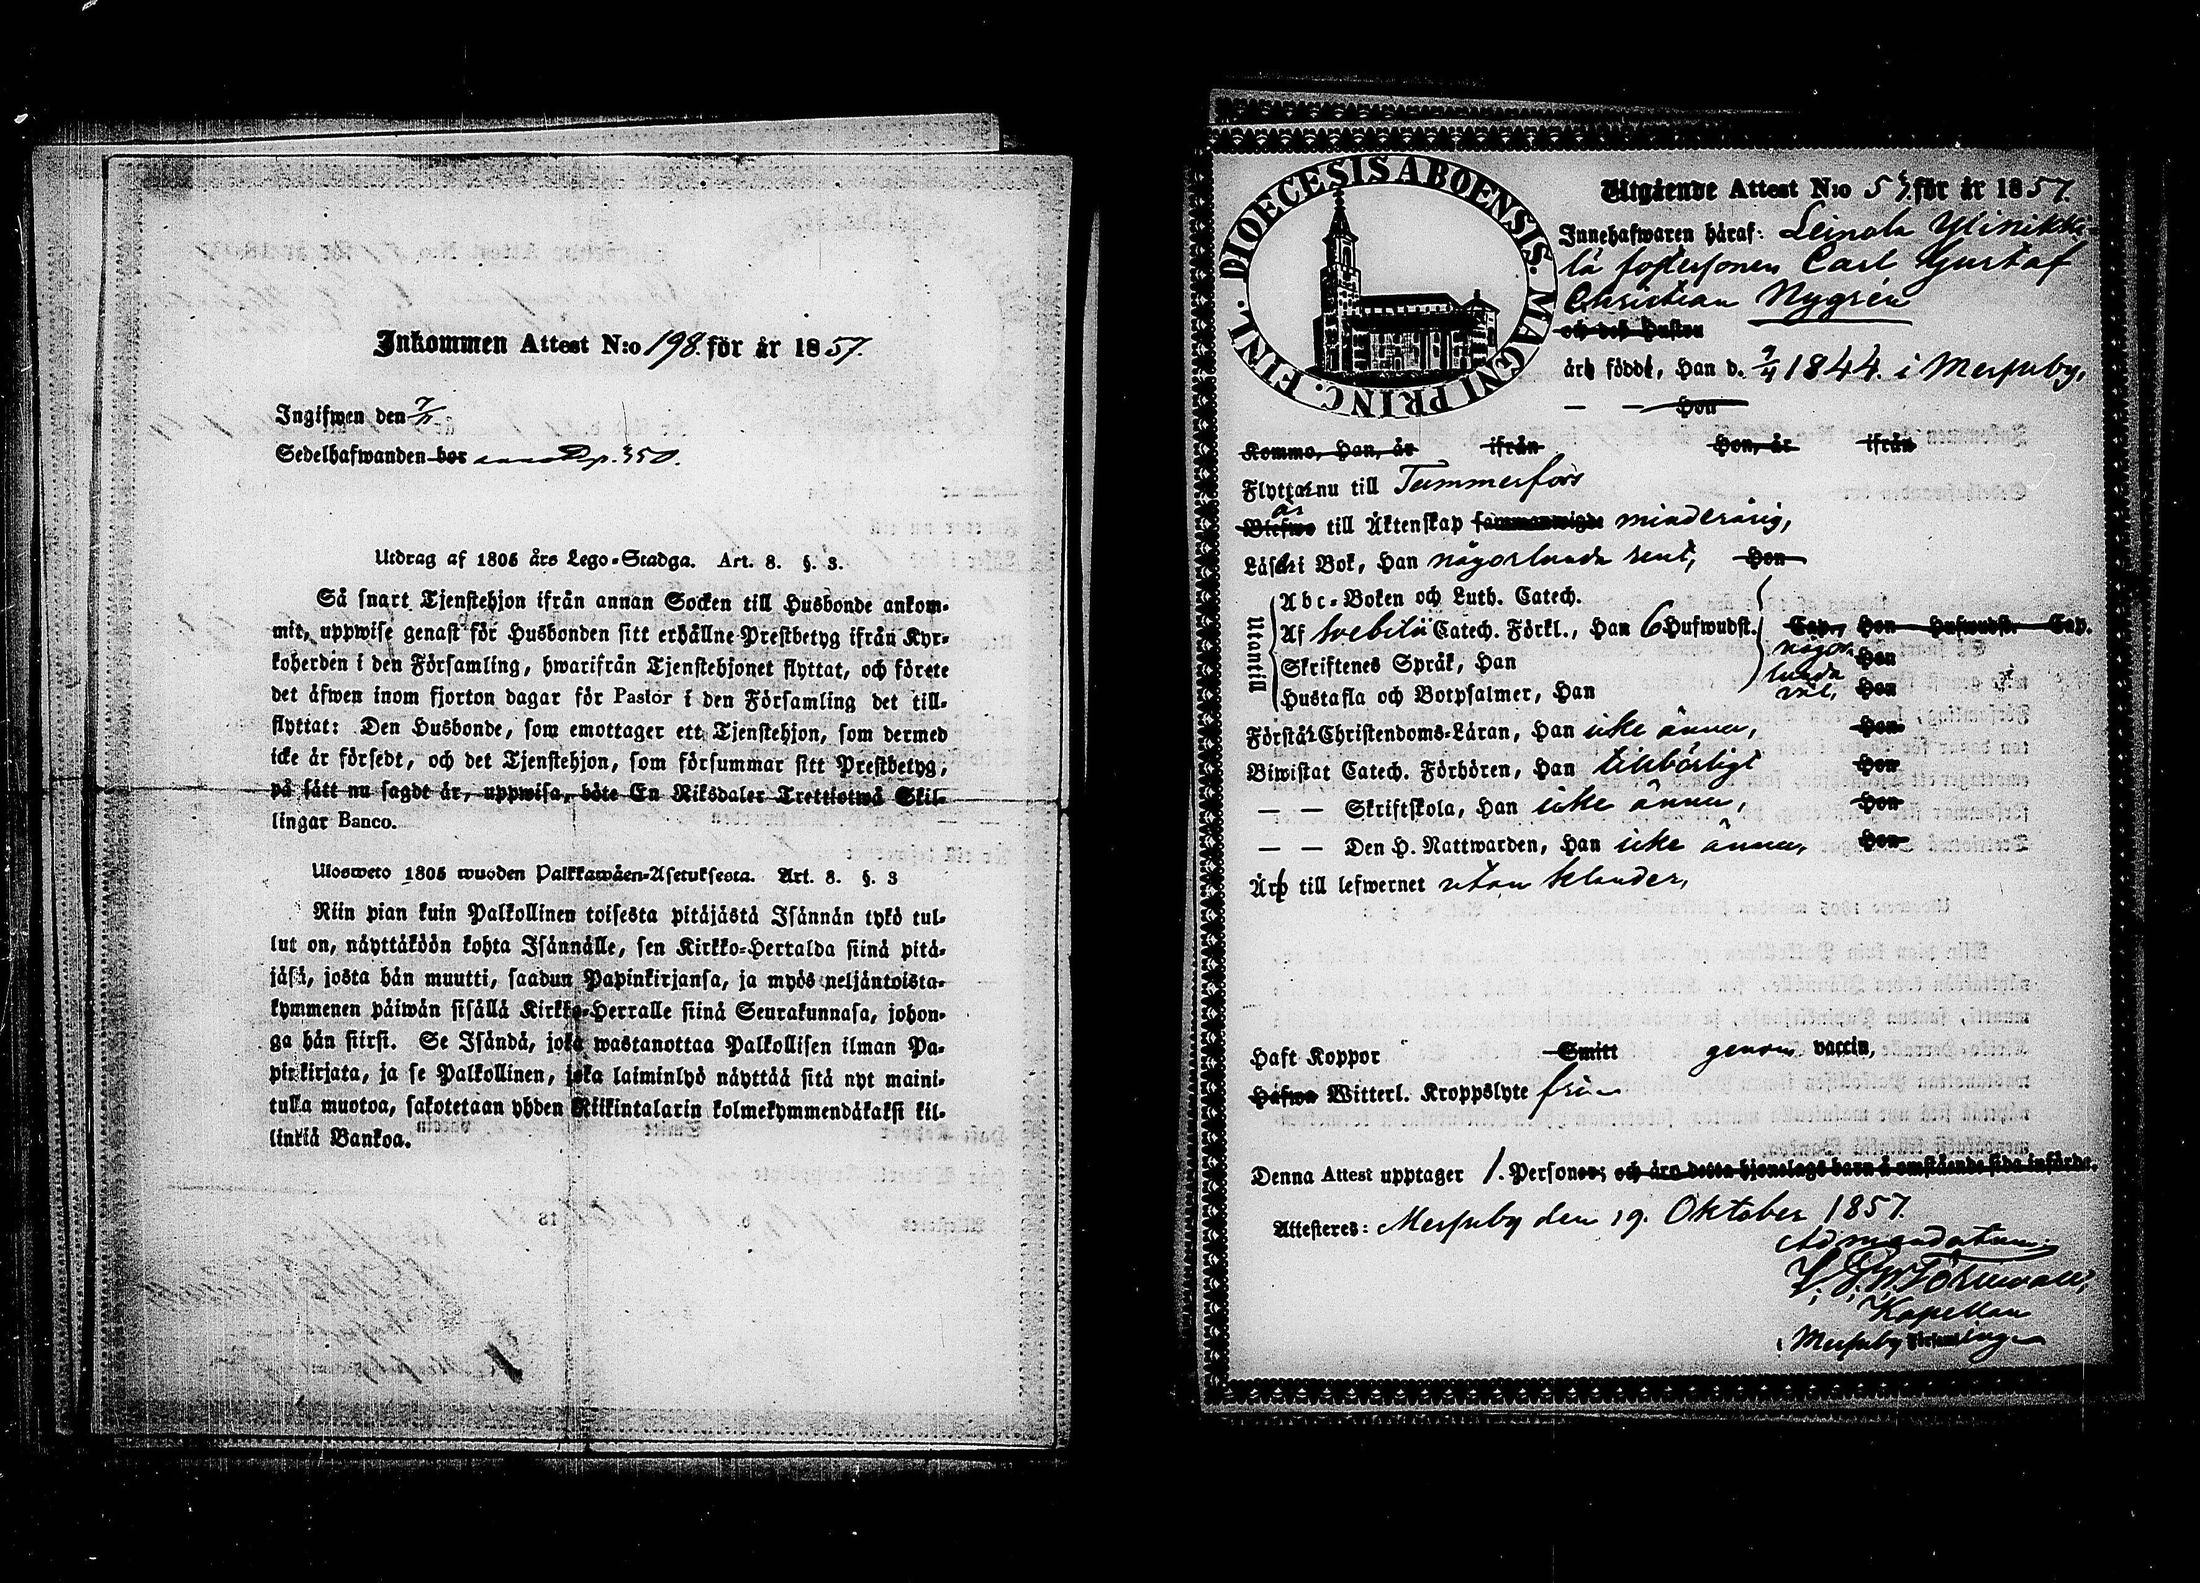 Inkommen Attest N:o 198. för år 1857.
Ingifwen den 7/11
Sedelhafwanden bor p. 350.
Utdrag af 1805 års Lego-Stadga. Art. 8. §. 3.
Så snart Tjenstehjon ifrån annan Socken till Husbonde ankom-
mit, uppwise genast för Husbonden sitt erhållne Prestbetyg ifrån Kyr-
koherden i den Församling, hwarifrån Tjenstehjonet flyttat, och förete
det äfwen inom fjorton dagar för Pastor i den Församling det till-
flyttat: Den Husbonde, som emottager ett Tjenstehjon, som dermed
icke är försedt, och det Tjenstehjon, som försummar sitt Prestbetyg,
på sätt nu sagdt är, uppwisa, böte En Riksdaler Trettiotwå Skil-
lingar Banco.
Ulosweto 1805 wuoden Palkkawäen-Asetuksesta. Art. 8. §. 3
Niin pian kuin Palkollinen toisesta pitäjästä Isännän tykö tul-
lut on, näyttäköön kohta Isännälle, sen Kirkko-Herralda siinä pitä-
jäsä, josta hän muutti, saadun Papinkirjansa, ja myös neljäntoista-
kymmenen päiwän sisällä Kirkko-Herralle siinä Seurakunnasa, johon-
ga hän siirsi. Se Isändä, joka wastanottaa Palkollisen ilman Pa-
pinkirjata, ja se Palkollinen, joka laiminlyö näyttää sitä nyt maini-
tulla muotoa, sakotetaan yhden Riikintalarin kolmekymmendäkaksi kil-
linkiä Bankoa.
DIOECESIS ABOENSIS. MAGNI PRINC. FINL.
Utgående Attest N:o 53 för år 1857.
Innehafwaren häraf: Leinola Ylinikki-
lä fostersonen Carl Gustaf
Christian Nygrén
och dess Hustru
är född, Han d. 1844. i Messuby,
— — Hon
Kommo, Han, år ifrån Hon, år ifrån
Flyttar nu till Tammerfors
är
Blefwo till Äktenskap sammanwigde minderårig,
Läser i Bok, Han någorlunda rent, Hon
Utantill
Abc-Boken och Luth. Catech.
Af Svebilii Catech. Förkl., Han 6 Hufwudst. Cap., Hon Hufwudst. Cap.
Skriftenes Språk, Han någor- Hon
Hustafla och Botpsalmer, Han lunda väl, Hon
Förstår Christendoms-Läran, Han icke ännu, Hon
Biwistat Catech. Förhören, Han tillbörligt Hon
— — Skriftskola, Han icke ännu, Hon
— — Den H. Nattwarden, Han icke ännu, Hon
Är till lefwernet utan klander,
Haft Koppor Smitt genom vaccin,
Hafwa Witterl. Kroppslyte fri
Denna Attest upptager 1. Personer; och äro detta hjonelags barn å omstående sida införde.
Attesteres: Messuby den 19. Oktober 1857.
Ad mandatum:
Törnwall,
Kapellan
i Messuby Församling